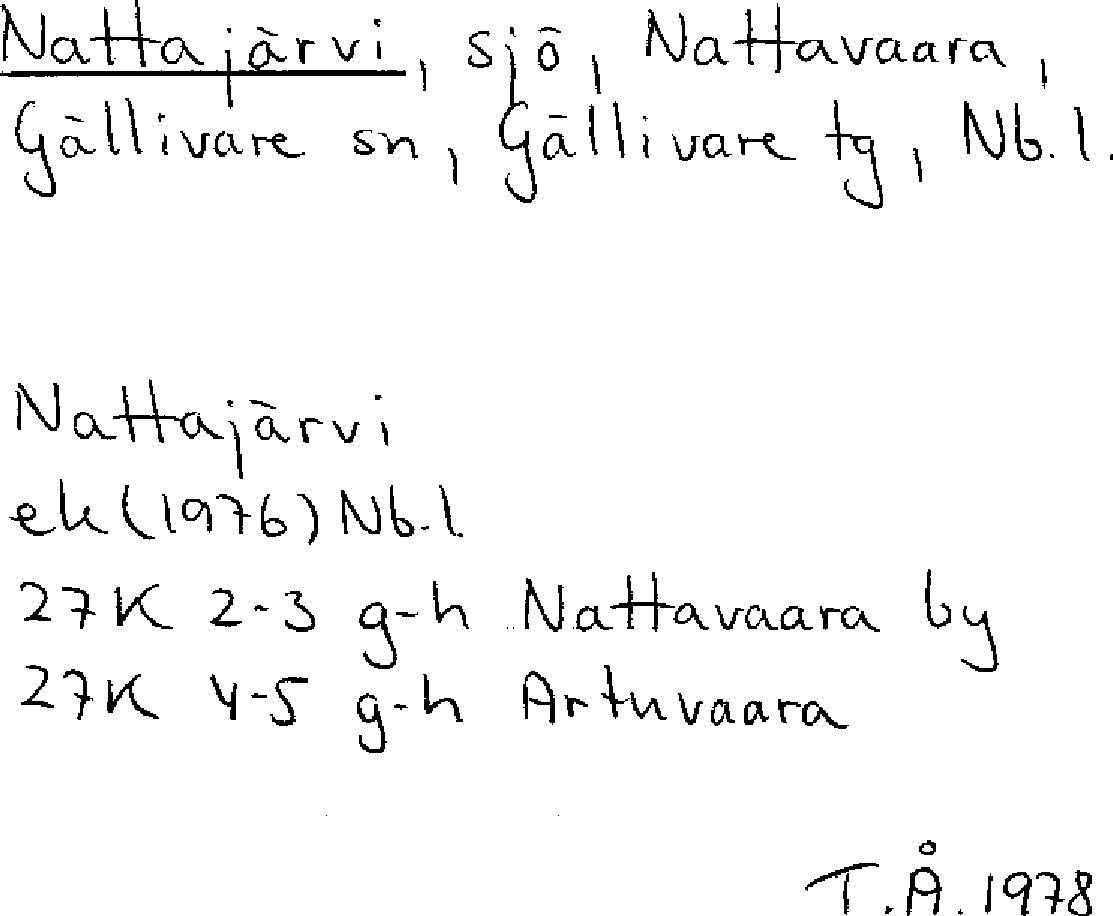 Nattajärvi, sjö, Nattavaara,
Gällivare sn, Gällivare tg, Nb.l.
Nattajärvi
ek (1976) Nb.l.
27K 2-3 g-h Nattavaara by
27K 4-5 g-h Artuvaara
T.Å. 1978